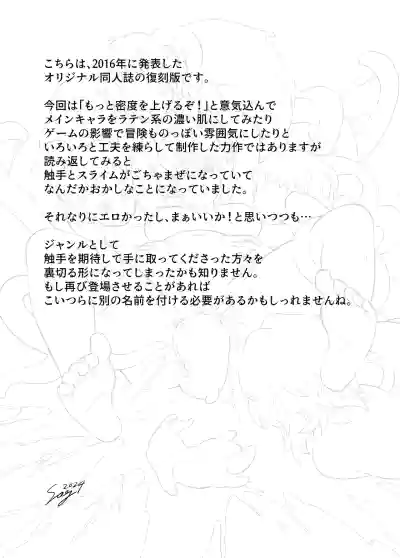 こちらは、2016年に発表した
オリジナル同人誌の復刻版です。
今回は「もっと密度を上げるぞ！」と意気込んで
メインキャラをラテン系の濃い肌にしてみたり
ゲームの影響で冒険ものっぽい雰囲気にしたりと
いろいろと工夫を練らして制作した力作ではありますが
読み返してみると
触手とスライムがごちゃまぜになっていて
なんだかおかしなことになっていました。
それなりにエロかったし、まぁいいか！と思いつつも…
ジャンルとして
触手を期待して手に取ってくださった方々を
裏切る形になってしまったかも知りません。
もし再び登場させることがあれば
こいつらに別の名前を付ける必要があるかもしっれませんね。
2024